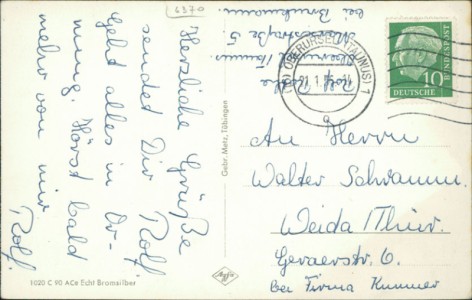 6370
Herzliche Grüße
sendet Dir Rolf.
Geht alles in Or-
nung. Hörst bald
mehr von mir
Rolf.
1020 C 90 ACe Echt Bromsilber
Gebr. Metz, Tübingen
Agfa
Rolf
Oberursel/Taunus
5.
bei
(16) OBERURSEL (TAUNUS) 1
a
10
DEUTSCHE
BUNDESPOST
An Herrn
Walter Schramm
Weida/Thür.
Geraerstr. 6.
bei Firma Kummer